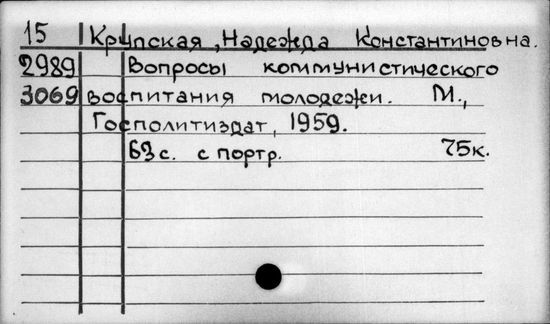 15 Крупская, Надежда Константиновна.
2989 Вопросы коммунистического
3069 воспитания молодежи. М.,
Госполитиздат, 1959.
63 с. с портр. 75к.